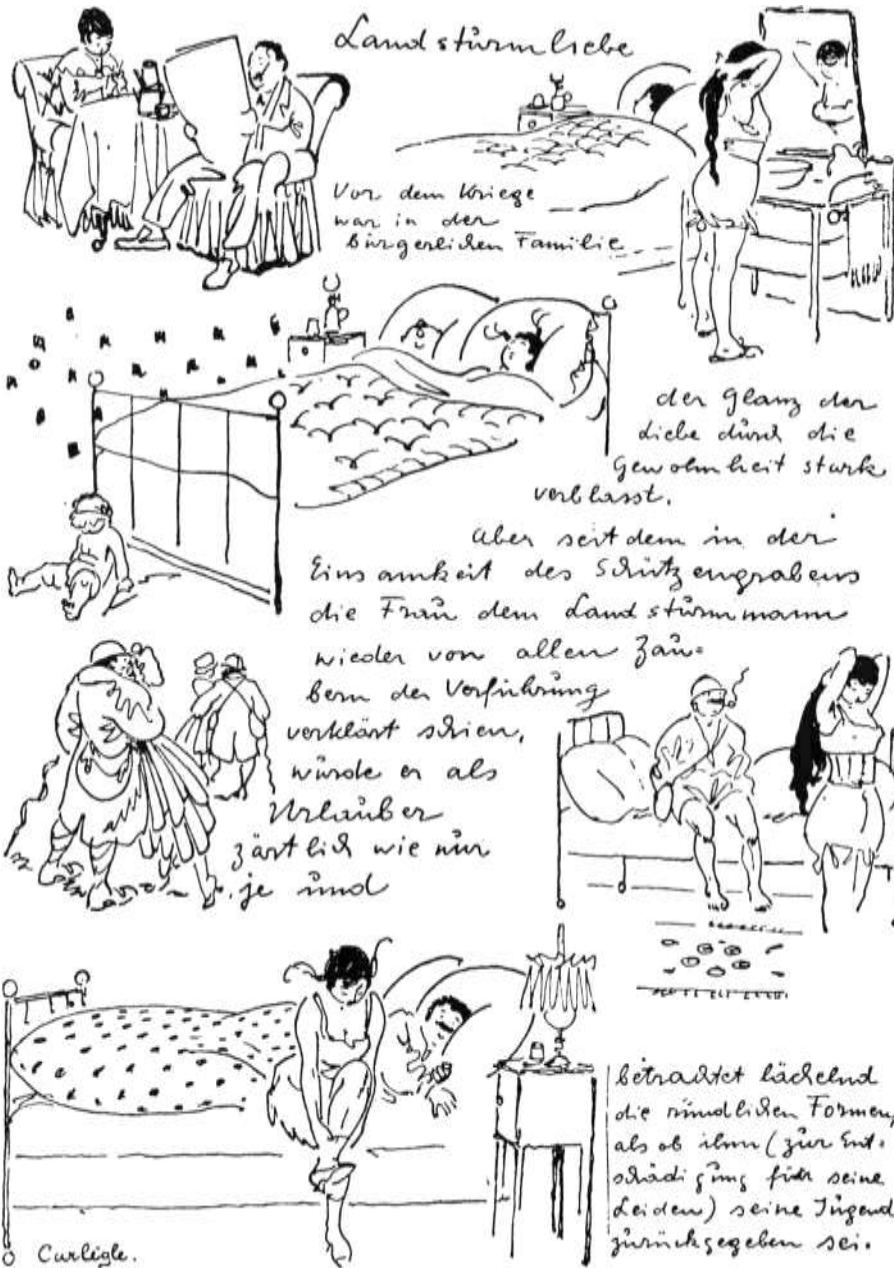 Landsturmliebe
Vor dem Kriege
war in der
bürgerlichen Familie
der Glanz der
Liebe durch die
Gewohnheit stark
verblasst.
Aber seitdem in der
Einsamkeit des Schützengrabens
die Frau dem Landsturmmann
wieder von allen Zau=
bern der Verführung
verklärt schien,
wurde er als
Urlauber
zärtlich wie nur
je und
betrachtet lächelnd
die rundlichen Formen,
als ob ihm (zur Ent=
schädigung für seine
Leiden) seine Jugend
zurückgegeben sei.
Carlègle.